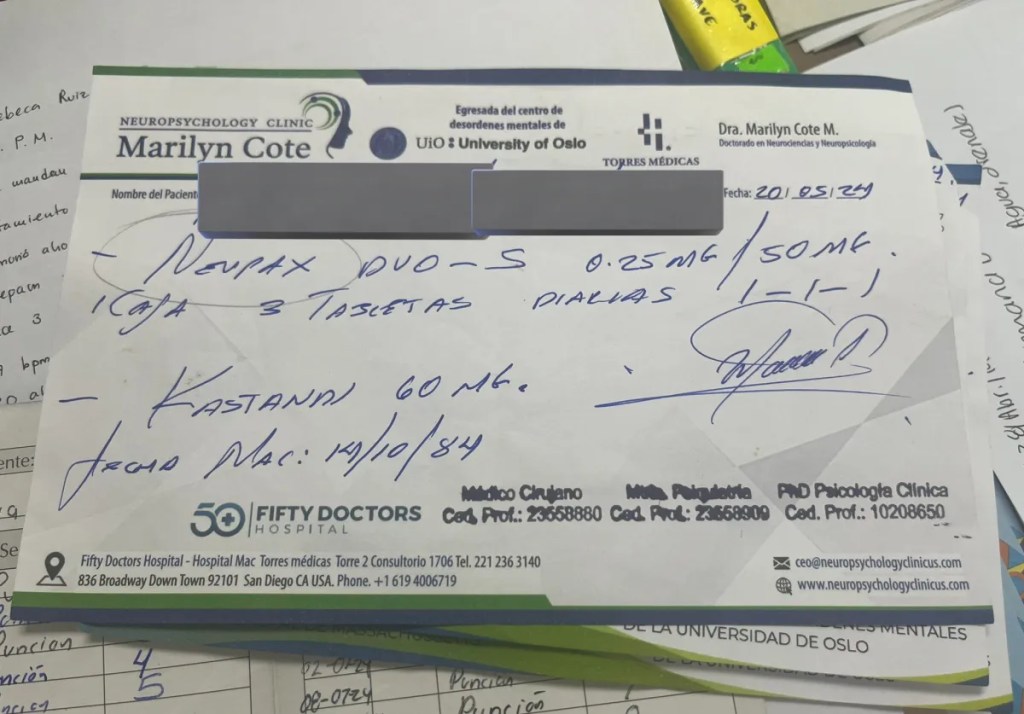 ORAS
AVE
ebeca Ruiz
P. M.
mandan
amiento
epam
3
bpm
NEUROPSYCHOLOGY CLINIC
Marilyn Cote
Egresada del centro de
desordenes mentales de
UiO: University of Oslo
TORRES MÉDICAS
Dra. Marilyn Cote M.
Doctorado en Neurociencias y Neuropsicología
Nombre del Pacient
Fecha: 20/05/24
- NEUPAX DUO-S 0.25MG/50MG.
1 CAJA 3 TABLETAS DIARIAS 1-1-1
- KASTANDI 60 MG.
FECHA NAC: 14/10/84
50 FIFTY DOCTORS
HOSPITAL
Médico Cirujano
Ced. Prof.: 23558880
Mtría. Psiquiatría
Ced. Prof.: 23558909
PhD Psicología Clínica
Ced. Prof.: 10208650
Fifty Doctors Hospital - Hospital Mac Torres médicas Torre 2 Consultorio 1706 Tel. 221 236 3140
836 Broadway Down Town 92101 San Diego CA USA. Phone. +1 619 4006719
ceo@neuropsychologyclinicus.com
www.neuropsychologyclinicus.com
DENES MENTALES
DE LA UNIVERSIDAD DE OSLO
ente:
Se
Punción
nción
4
5
02-0724
08-0724
Punción
Punción